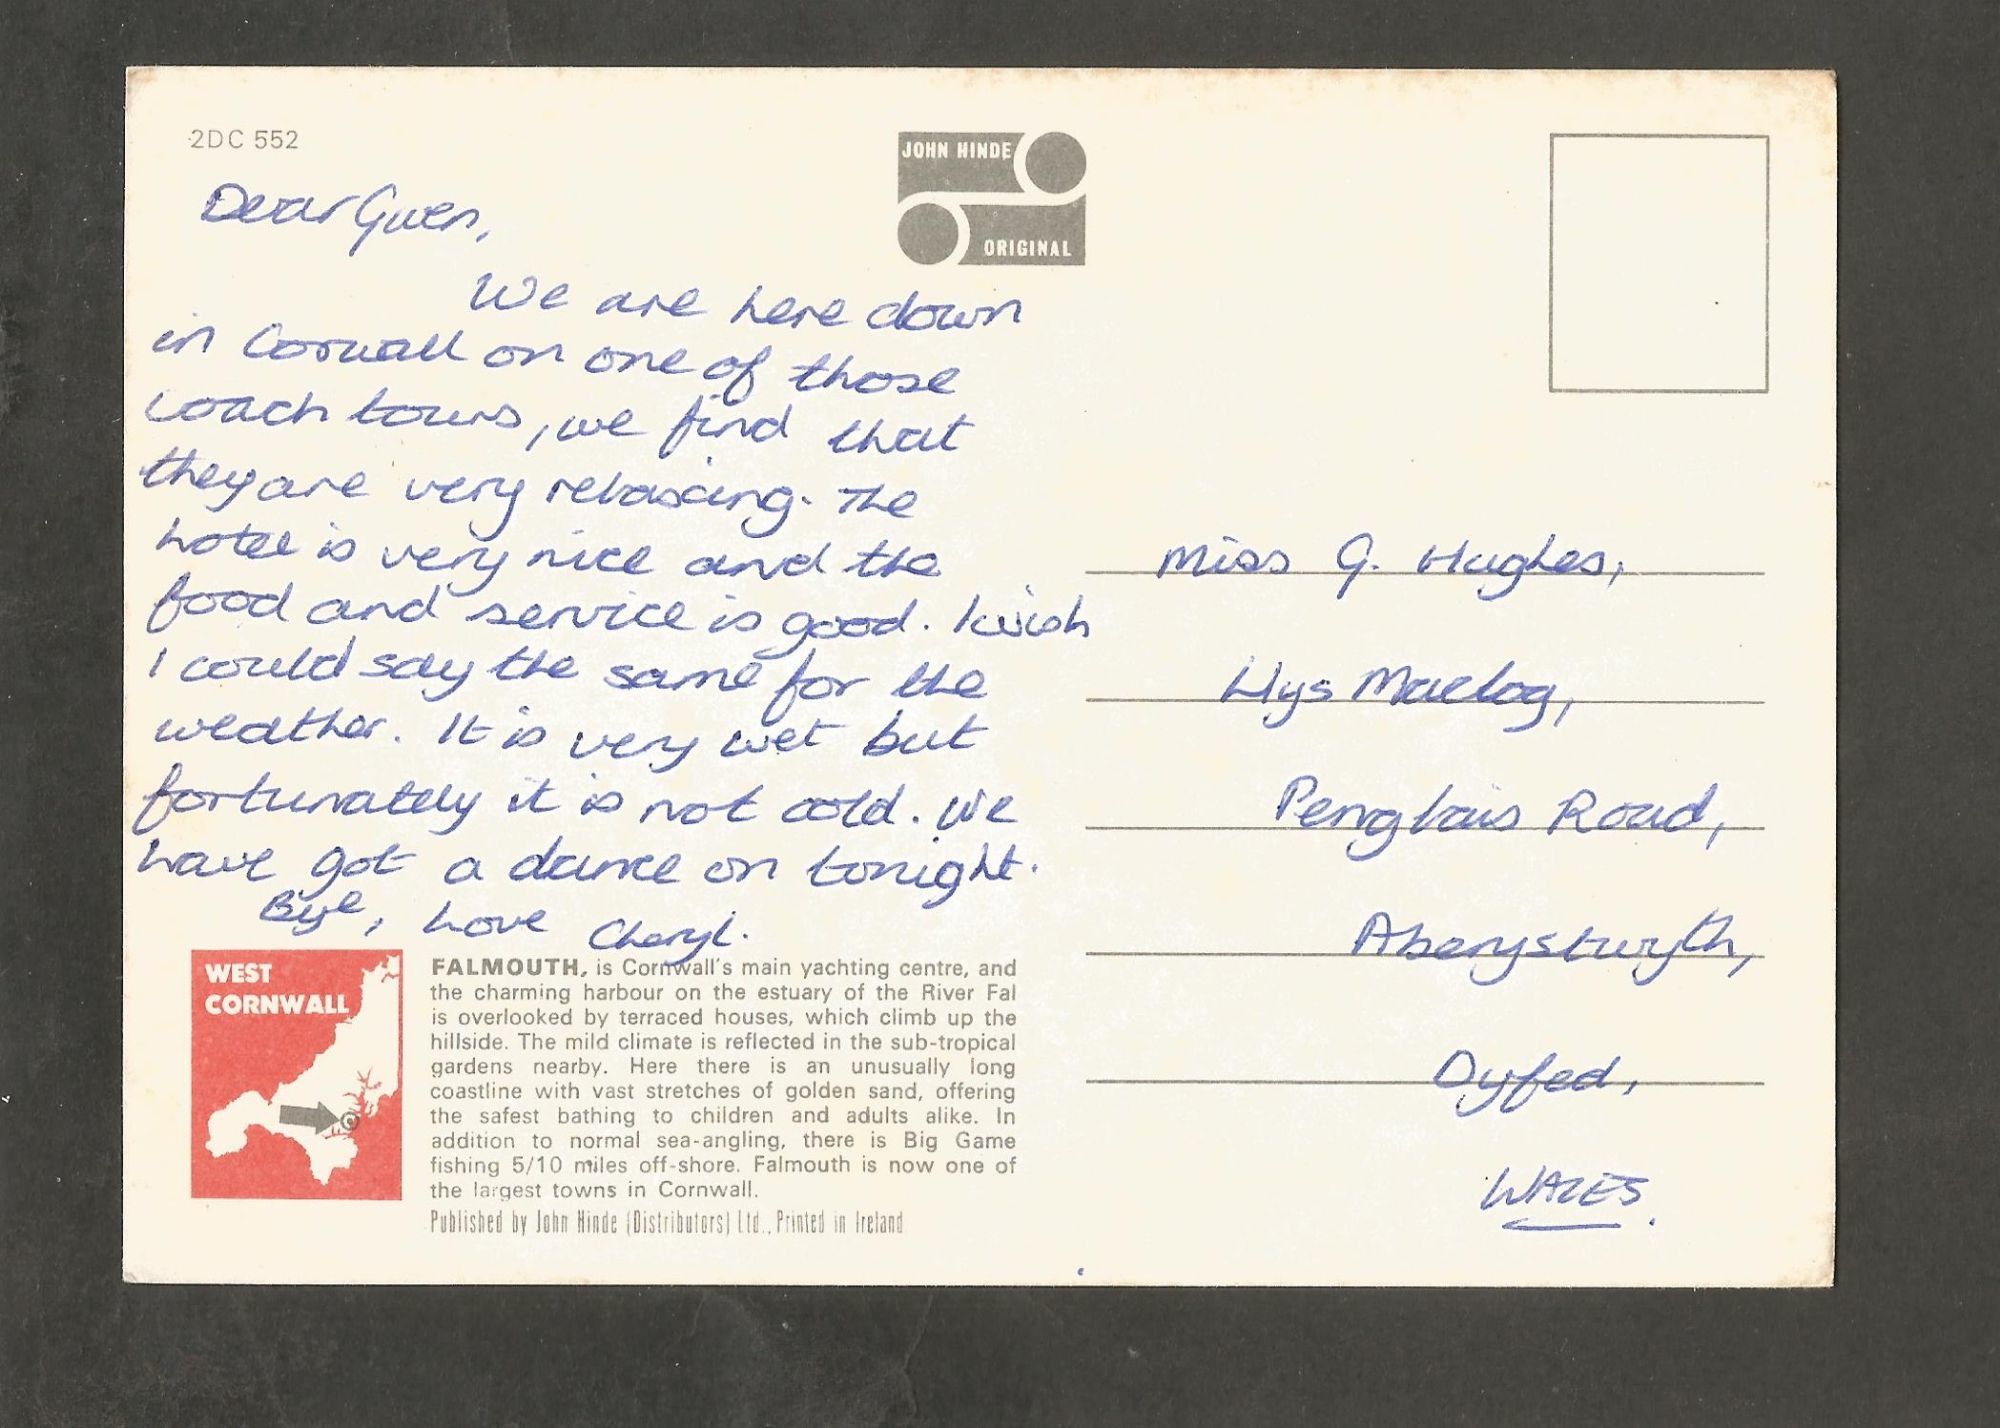 2DC 552
JOHN HINDE
ORIGINAL
Dear Gwen,
We are here down
in Corwall on one of those
coach tours, we find that
they are very relaxing. The
hotel is very nice and the
food and service is good. I wish
I could say the same for the
weather. It is very wet but
fortunately it is not cold. We
have got a dance on tonight.
Bye, Love Cheryl.
WEST
CORNWALL
FALMOUTH, is Cornwall's main yachting centre, and
the charming harbour on the estuary of the River Fal
is overlooked by terraced houses, which climb up the
hillside. The mild climate is reflected in the sub-tropical
gardens nearby. Here there is an unusually long
coastline with vast stretches of golden sand, offering
the safest bathing to children and adults alike. In
addition to normal sea-angling, there is Big Game
fishing 5/10 miles off-shore. Falmouth is now one of
the largest towns in Cornwall.
Published by John Hinde (Distributors) Ltd., Printed in Ireland
Miss G. Hughes,
Llys Maelog,
Penglais Road,
Aberystwyth,
Dyfed,
WALES.